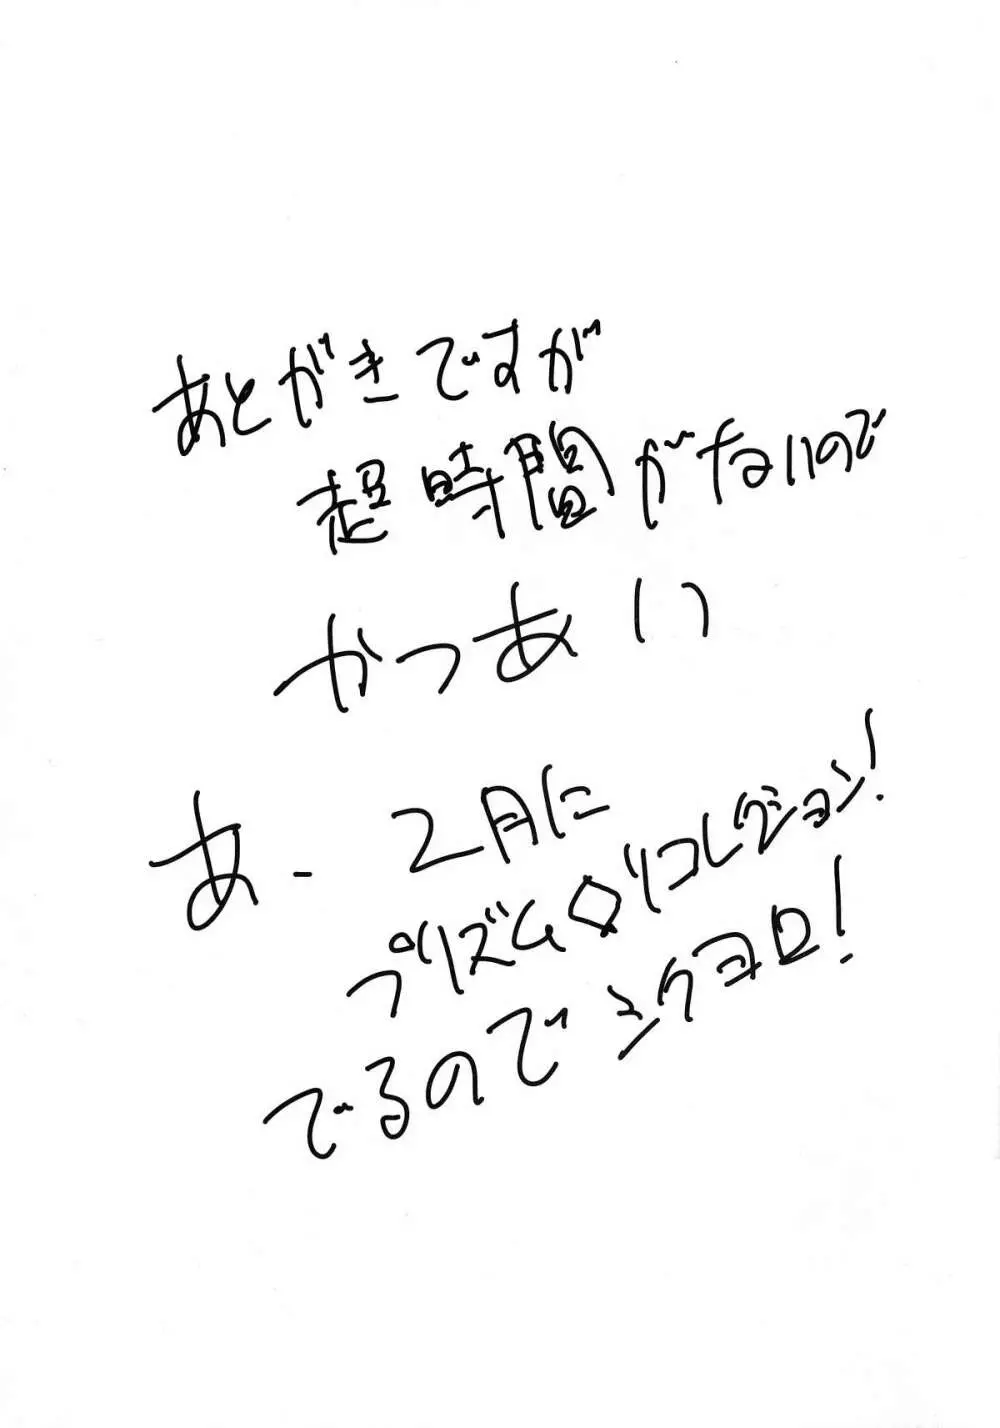 あとがきですが
超時間がないので
かつあい
あ、2月に
プリズム◇リコレクション!
でるのでシクヨロ!